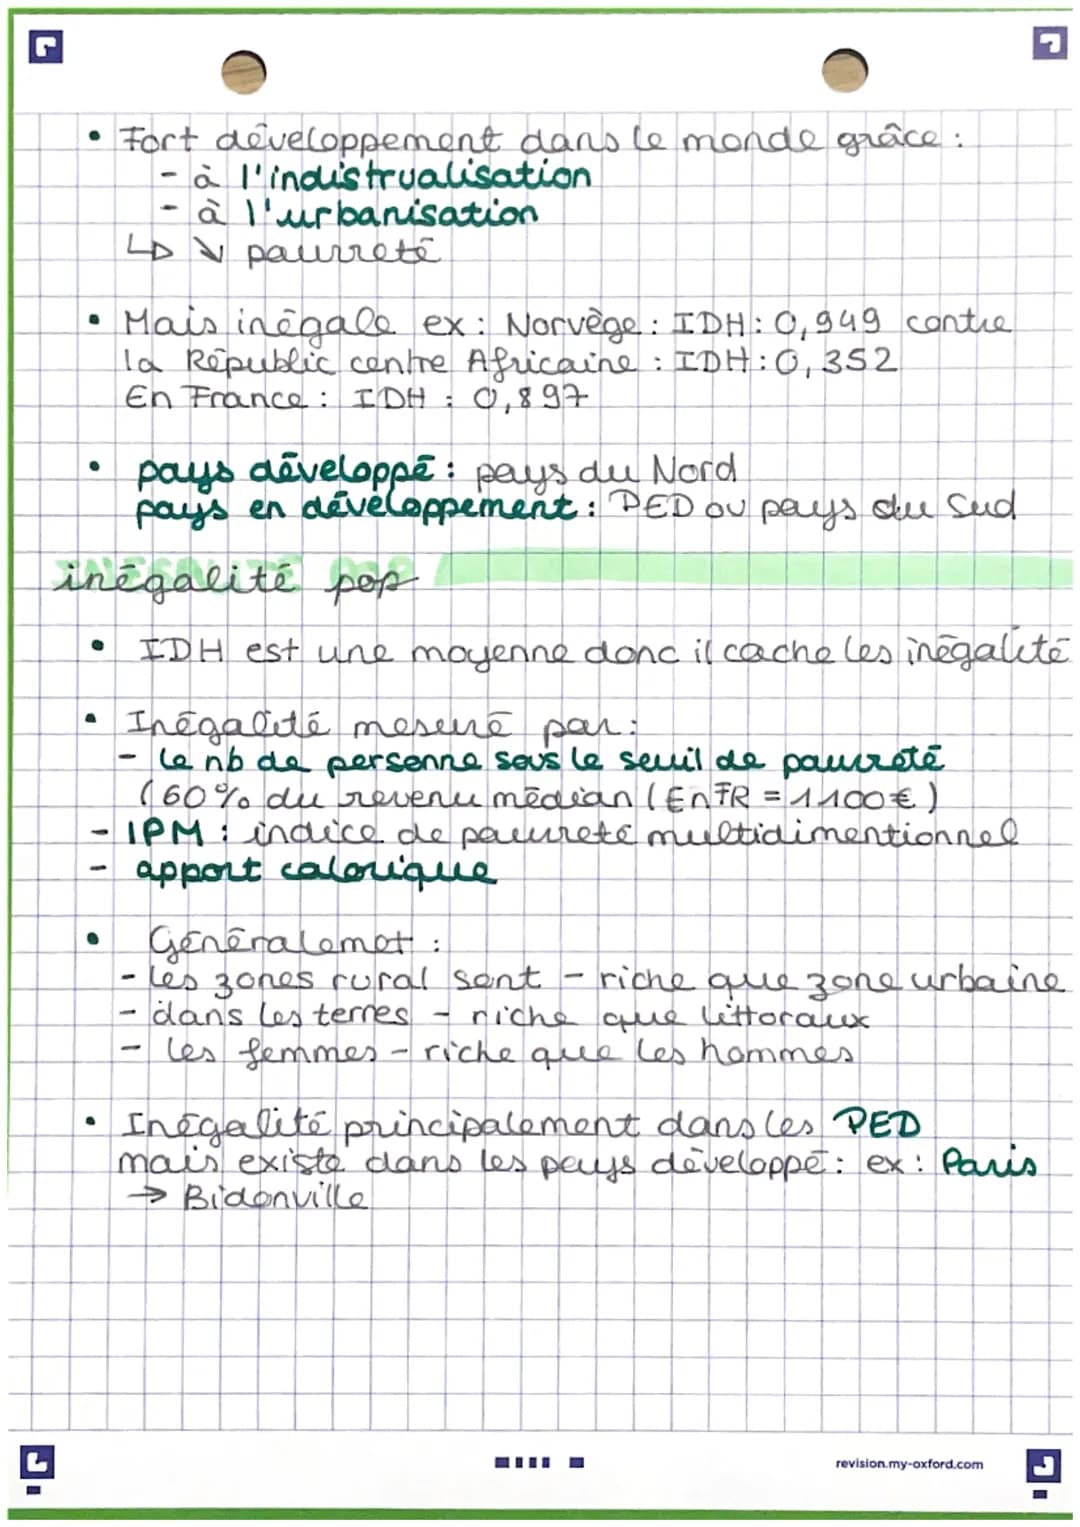 • Fort développement dans le monde grâce :
- à l'indistrualisation
- à l'urbanisation
↳ ↘ pauvreté
• Mais inégale ex : Norvège : IDH : 0,949 contre
la Républic centre Africaine : IDH : 0,352
En France : IDH : 0,897
• pays développé : pays du Nord
pays en développement : PED ou pays du Sud
inégalité pop
• IDH est une moyenne donc il cache les inégalité
• Inégalité mesuré par :
- le nb de personne sous le seuil de pauvreté
(60% du revenu médian (En FR = 1100€)
- IPM : indice de pauvreté multidimentionnel
- apport calorique
• Généralemet :
- les zones rural sont - riche que zone urbaine
- dans les terres - riche que littoraux
- les femmes - riche que les hommes
• Inégalité principalement dans les PED
mais existe dans les pays développé : ex : Paris
→ Bidonville
revision.my-oxford.com